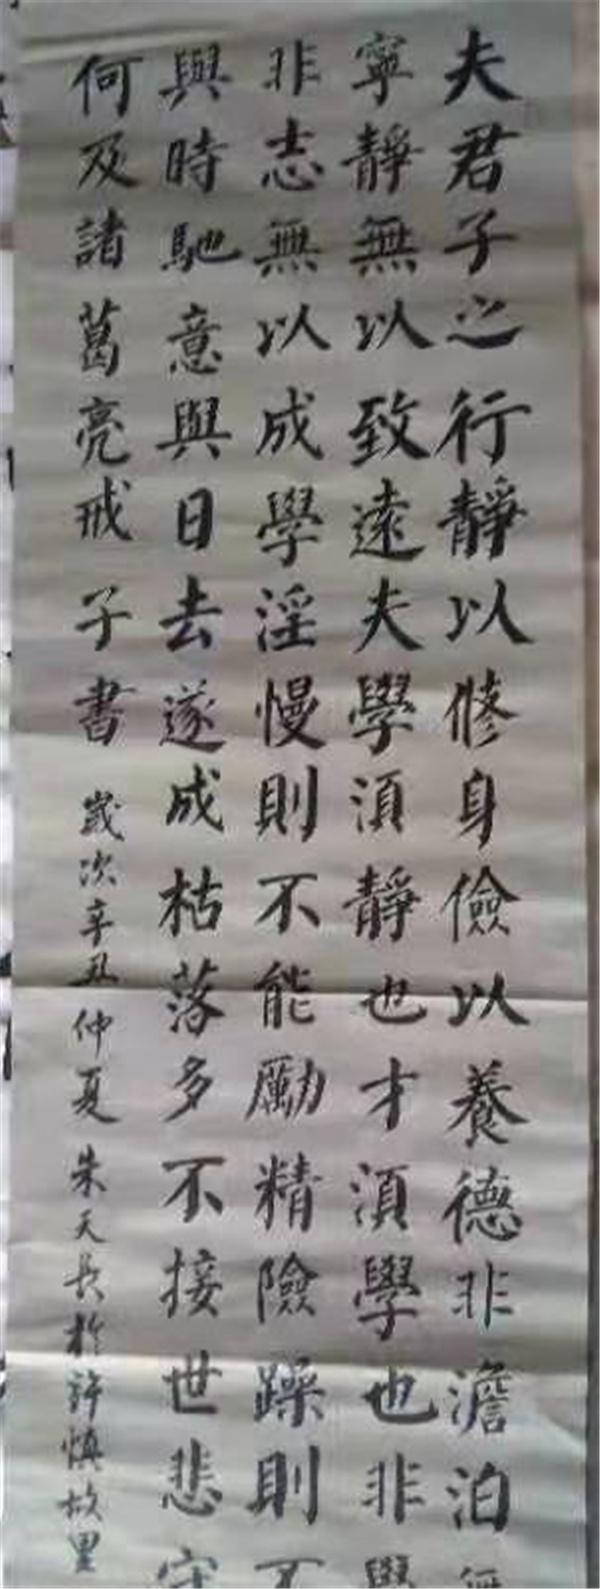 夫君子之行靜以修身儉以養德非澹泊無
寧靜無以致遠夫學須靜也才須學也非學
非志無以成學淫慢則不能勵精險躁則不
與時馳意與日去遂成枯落多不接世悲守
何及諸葛亮戒子書
歲次辛丑仲夏朱天長於許慎故里